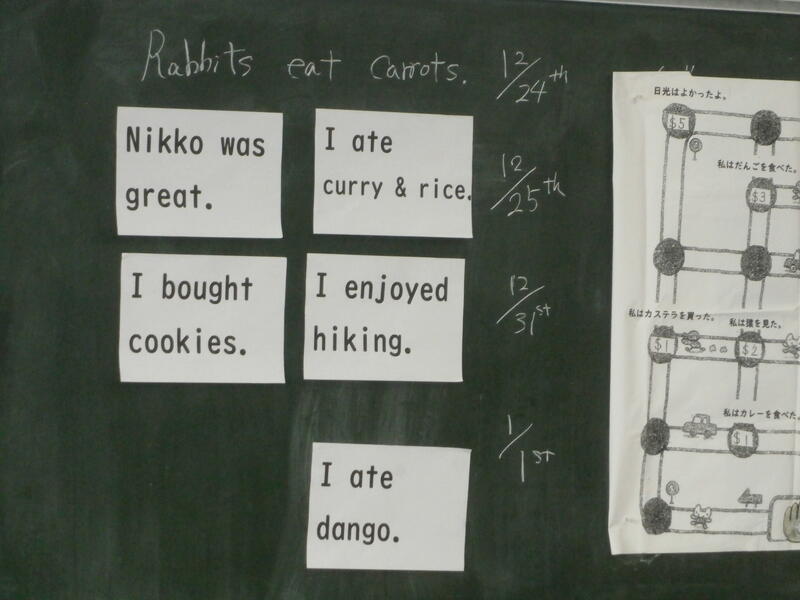 Rabbits eat carrots.
12/24th
Nikko was
great.
I ate
curry & rice.
12/25th
I bought
cookies.
I enjoyed
hiking.
12/31st
I ate
dango.
1/1st
日光はよかったよ。
$5
私はだんごを食べた。
$3
私はカステラを買った。
私は猿を見た。
$1
$2
私はカレーを食べた。
$1